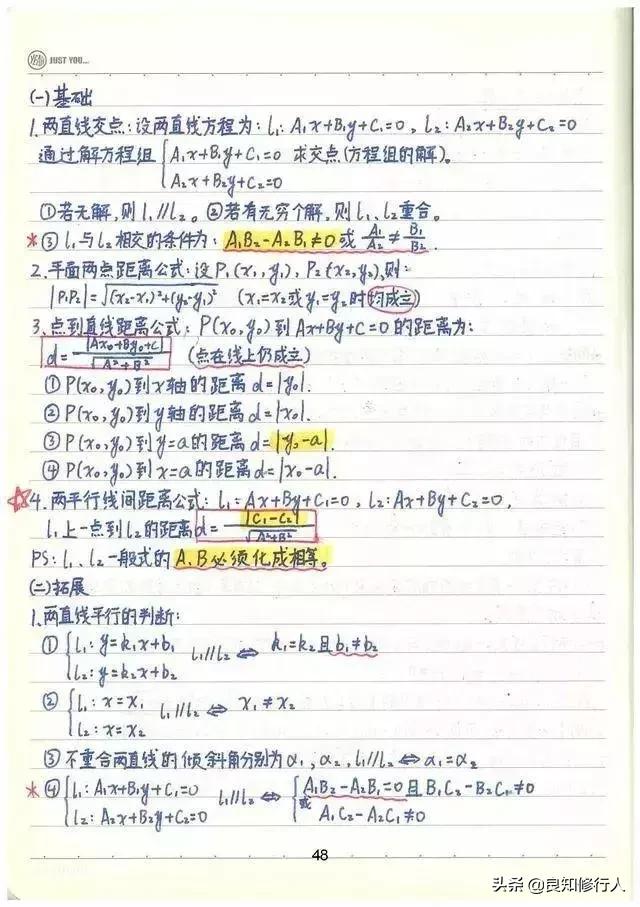 JUST YOU...
(一)基础
1.两直线交点:设两直线方程为: l₁: A₁x+B₁y+C₁=0, l₂: A₂x+B₂y+C₂=0
通过解方程组{A₁x+B₁y+C₁=0 求交点(方程组的解)。
A₂x+B₂y+C₂=0
①若无解,则l₁∥l₂。②若有无穷个解,则l₁、l₂重合。
*③l₁与l₂相交的条件为: A₁B₂-A₂B₁≠0或 A₁/A₂≠B₁/B₂.
2.平面两点距离公式:设P₁(x₁,y₁), P₂(x₂,y₂),则:
|P₁P₂|=√(x₂-x₁)²+(y₂-y₁)² (x₁=x₂或y₁=y₂时均成立)
3.点到直线距离公式: P(x₀,y₀)到Ax+By+C=0的距离为:
d=|Ax₀+By₀+C|/√A²+B² (点在线上仍成立)
①P(x₀,y₀)到x轴的距离d=|y₀|.
②P(x₀,y₀)到y轴的距离d=|x₀|.
③P(x₀,y₀)到y=a的距离d=|y₀-a|.
④P(x₀,y₀)到x=a的距离d=|x₀-a|.
☆4.两平行线间距离公式: l₁=Ax+By+C₁=0, l₂:Ax+By+C₂=0,
l₁上一点到l₂的距离d=|C₁-C₂|/√A²+B²
PS: l₁、l₂一般式的A、B必须化成相等。
(二)拓展
1.两直线平行的判断:
①{l₁: y=k₁x+b₁ l₁∥l₂ ⇔ k₁=k₂且b₁≠b₂
l₂: y=k₂x+b₂
②{l₁: x=x₁ l₁∥l₂ ⇔ x₁≠x₂
l₂: x=x₂
③不重合两直线的倾斜角分别为α₁,α₂, l₁∥l₂⇔α₁=α₂
*④{l₁: A₁x+B₁y+C₁=0 l₁∥l₂ ⇔ {A₁B₂-A₂B₁=0且B₁C₂-B₂C₁≠0
l₂: A₂x+B₂y+C₂=0 或 A₁C₂-A₂C₁≠0
48
头条 @良知修行人